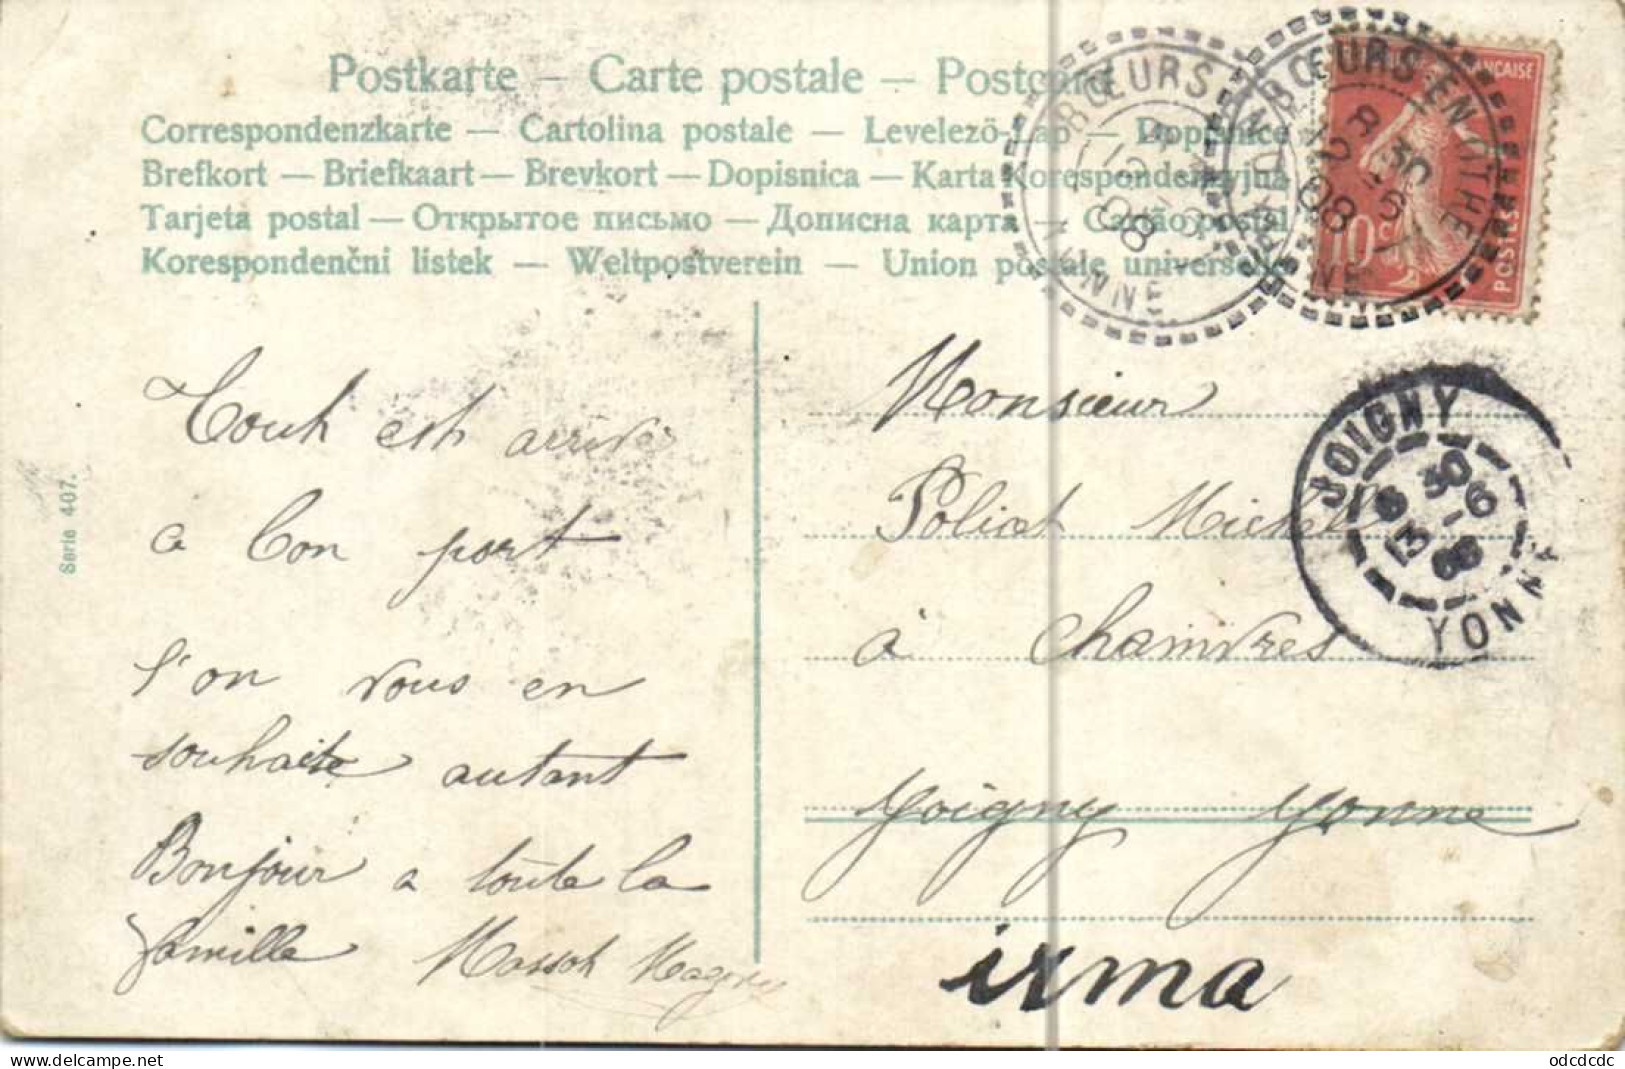 Postkarte — Carte postale — Postcard
Correspondenzkarte — Cartolina postale — Levelezö-Lap — Dopisnice
Brefkort — Briefkaart — Brevkort — Dopisnica — Karta Korespondencyjna
Tarjeta postal — Открытое письмо — Дописна карта — Cartão postal
Korespondenčni listek — Weltpostverein — Union postale universelle
BŒURS EN OTHE
YONNE
8 30
12 5
08
10 c
POSTES
JOIGNY
8 30
13 - 6
08
YONNE
Serie 407.
Tout est arrivé
a bon port
l'on vous en
souhaite autant
Bonjour a toute la
famille Massot
Monsieur
Policet Michel
à Chamvres
Joigny Yonne
irma
odcdcdc